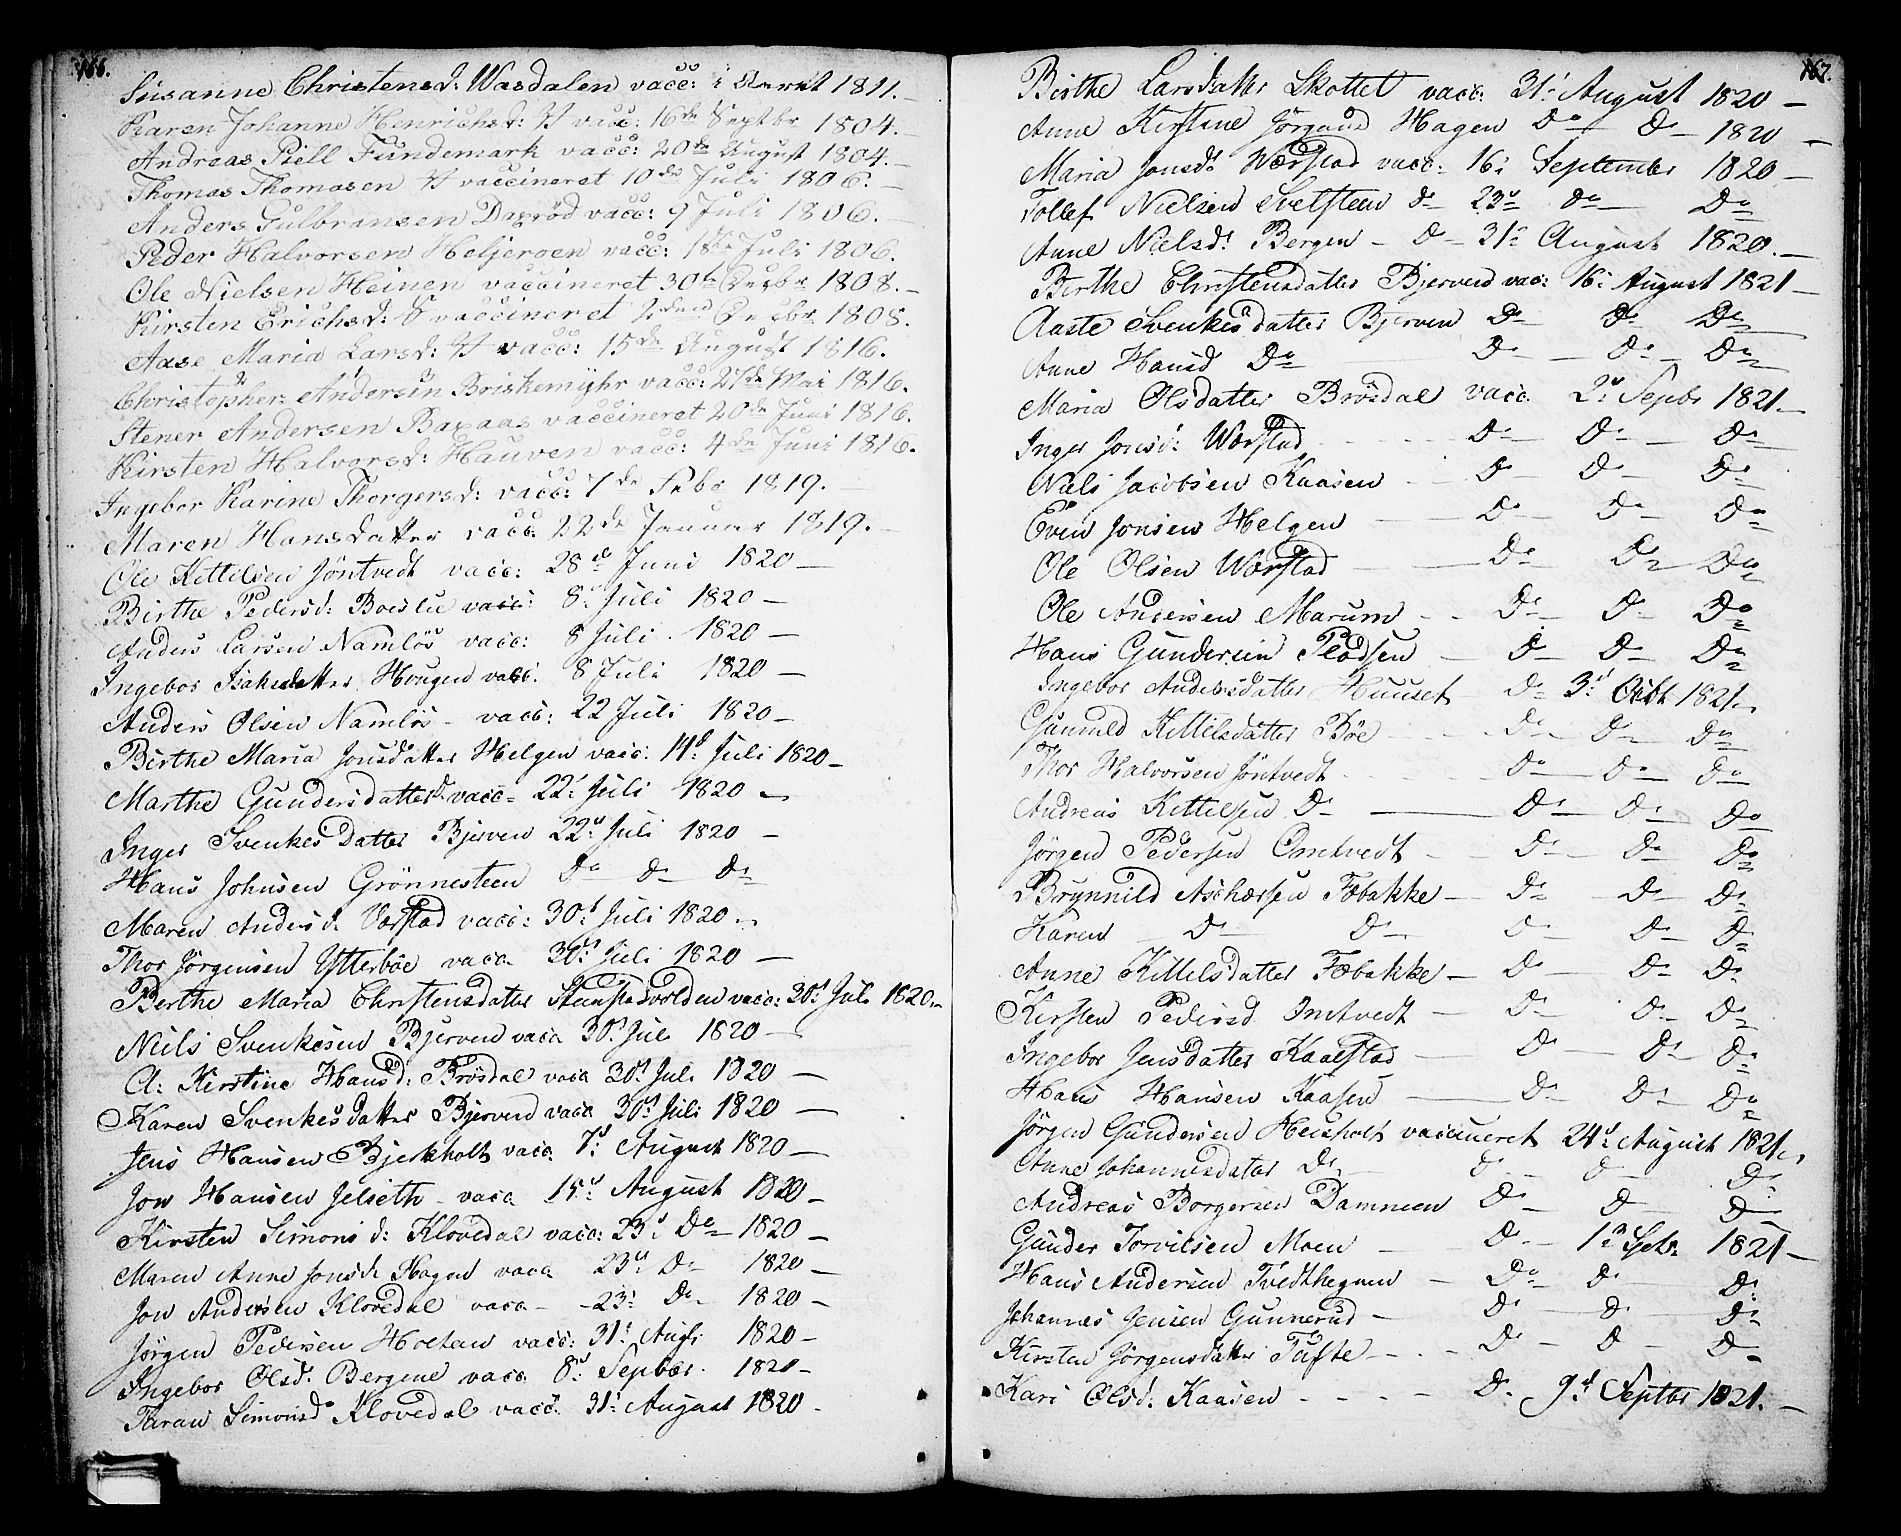 166.
Susanne Christensd: Wasdalen vacc: i 1811.
Karen Johanne Henrichsd: vacc: 16de Septbr 1804.
Andreas Piell Fundemark vacc: 20de August 1804.
Thomas Thomasen vaccineret 10de Juli 1806.
Anders Gulbransen Daxröd vacc: 9 Juli 1806.
Peder Halvorsen Heljeroen vacc: 18de Juli 1806.
Ole Nielsen Heinen vaccineret 30te 1808.
Kirsten Erichsd: vaccineret 1808.
Aase Maria Larsd: vacc: 15de August 1816.
Christopher Andersen Briskemyhr vacc: 27de Mai 1816.
Stener Andersen Baxaas vaccineret 20de Juni 1816.
Kirsten Halvorsd: Hauven vacc: 4de Juni 1816.
Ingebor Karine Thorgersd: vacc: 7de Febr 1819.
Maren Hansdatter vacc. 22de Januar 1819.
Ole Kittilsen Jöntvedt vacc: 28de Juni 1820
Birthe Pedersd: Boeslie vacc: 8d Juli 1820
Anders Larsen Namlös vacc: 8 Juli 1820
Ingebor Isaksdatter Hougen vacc: 8 Juli 1820
Anders Olsen Namlös vacc: 22 Juli 1820
Birthe Maria Jonsdatter Helgen vacc: 14d Juli 1820
Marthe Gundersdatter vacc 22d Juli 1820
Inger Svenkesdatter Bjerven 22d Juli 1820
Hans Johnsen Grönnesteen Do Do Do
Maren Andersd: Værstad vacc: 30d Juli 1820
Thor Jörgensen Ytterböe vacc 30d Juli 1820
Berthe Maria Christensdatter Steenstadvolden vacc: 30d Juli 1820
Niels Svenkesen Bjerven vacc 30d Juli 1820
A: Kirstine Hansd: Brösdal vacc 30d Juli 1820
Karen Svenkesdatter Bjerven vacc 30d Juli 1820
Jens Hansen Bjerkholt vacc 7d August 1820
Jon Hansen Jelseth vacc 15d August 1820
Kirsten Simonsd: Klovedal vacc: 23d Do 1820
Maren Anne Jonsd: Hagen vacc 23d Do 1820
Jon Andersen Klovedal vacc 23d Do 1820
Jörgen Pedersen Hoetan vacc: 31d Augs 1820
Ingebor Olsd: Bergene vacc 8d Sepbr. 1820
Taran Simonsd Klovedal vacc: 31d August 1820
167.
Birthe Larsdatter Skottet vacc: 31d August 1820
Anne Kirstine Jörgensd Hagen Do Do 1820
Maria Jonsd: Værstad vacc: 16d September 1820
Tollef Nielsen Svelsteen Do 23d Do Do
Anne Nielsd: Bergen Do 31d August 1820.
Birthe Christensdatter Bjerven vac: 16d August 1821
Aaste Svenkesdatter Bjerven Do Do Do
Anne Hansd Do Do Do Do
Maria Olsdatter Brösdal vacc 2d Sepbr 1821.
Inger Jonsd: Værstad Do Do Do
Niels Jacobsen Kaasen Do Do Do
Even Jonsen Helgen Do Do Do
Ole Olsen Værstad Do Do Do
Ole Andersen Marum Do Do Do
Hans Gundersen Pladsen Do Do Do
Ingebor Andersdatter Huuset Do 3d Octb 1821
Gunnild Kittilsdatter Böe Do Do Do
Thor Halvorsen Jöntvedt Do Do Do
Andreas Kittelsen Do Do Do Do
Jörgen Pedersen Omtvedt Do Do Do
Brynnild Aschersen Fæbakke Do Do Do
Karen Do Do Do Do Do
Anne Kittelsdatter Fæbakke Do Do Do
Kirsten Pedersd Omtvedt Do Do Do
Ingebor Jensdatter Kaalstad Do Do Do
Hans Hansen Kaasen Do Do Do
Jörgen Gundersen Heisholt vaccineret 24d August 1821
Anne Johannesdatter Do Do Do Do
Andreas Borgersen Damneen Do Do Do
Gunder Torvilsen Moen Do 1d Septr 1821
Hans Andersen Tvedthegnen Do Do Do
Johannes Jensen Gunnerud Do Do Do
Kirsten Jörgensdatter Tufte Do Do Do
Kari Olsd: Kaasen Do 9d Septbr 1821.